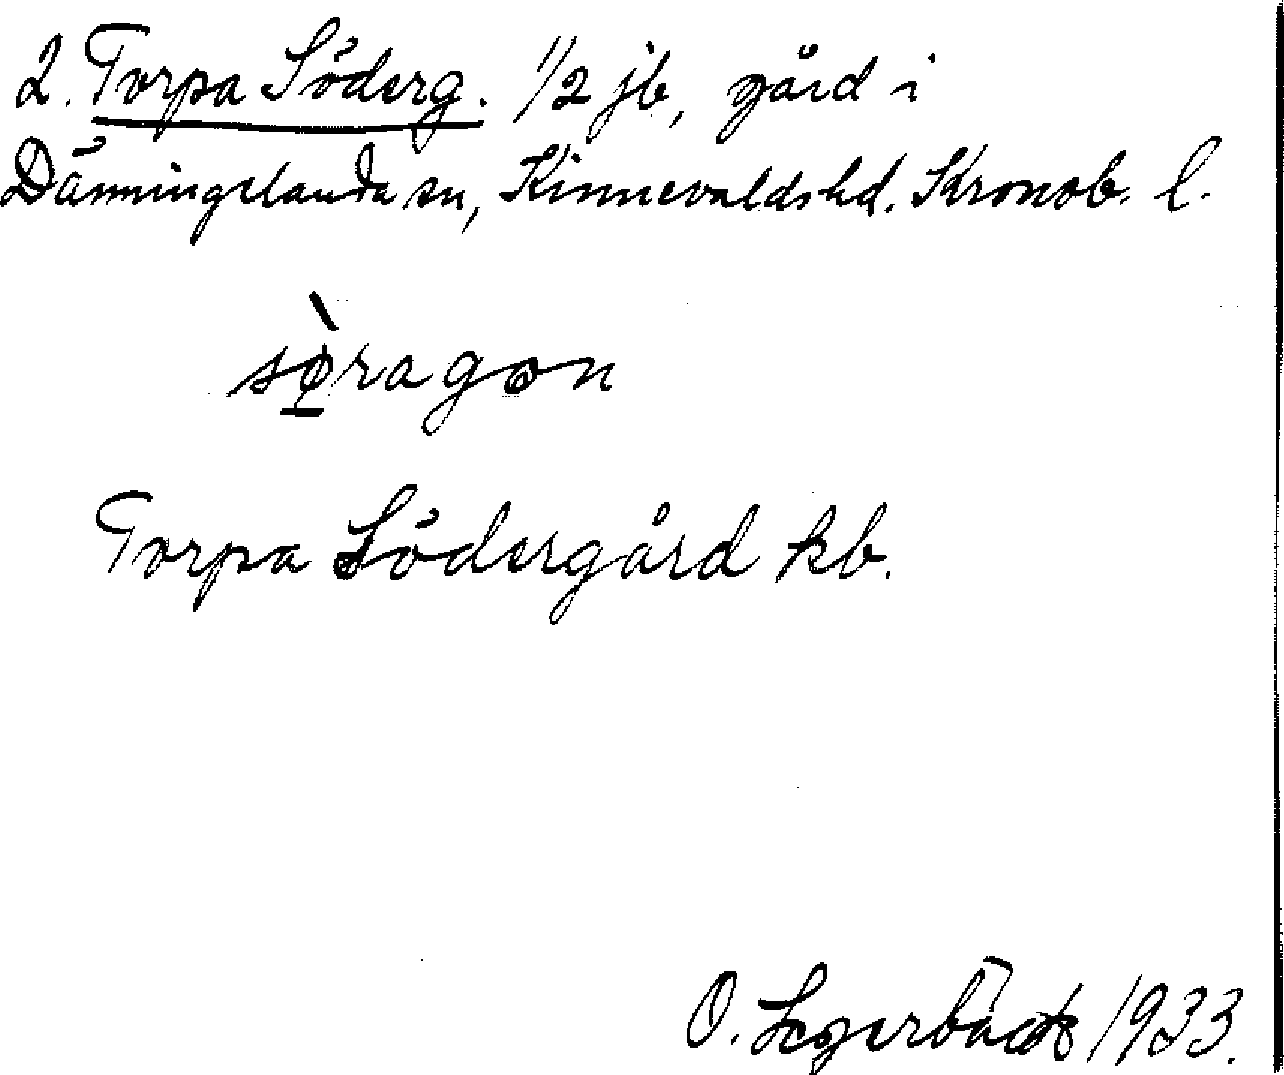 2. Torpa Söderg. 1/2 jb, gård i
Dänningelanda sn, Kinnevaldshd. Kronob. l.
sø̱̀ragøn
Torpa Södergård kb.
O. Segerbäck 1933.